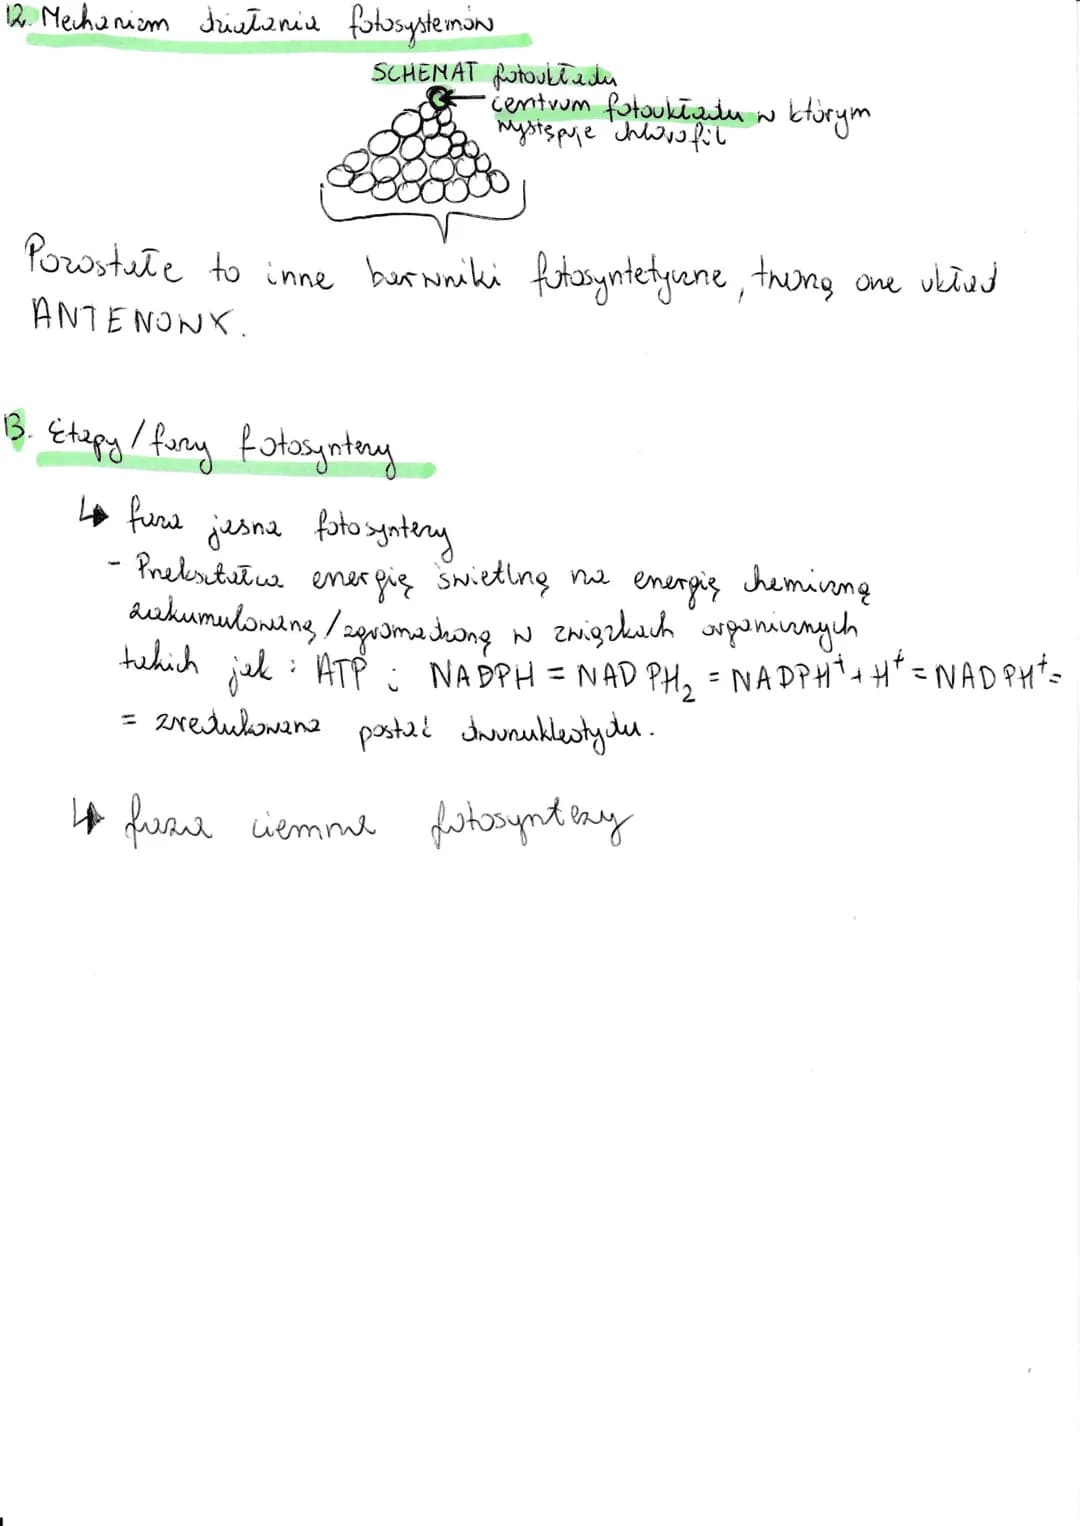 12. Mechanizm działania fotosystemów
SCHEMAT fotoukładu
centrum fotoukładu w którym
występuje chlorofil
Pozostałe to inne barwniki fotosyntetyczne, tworzą one układ
ANTENOWY.
13. Etapy / fazy fotosyntezy
↳ faza jasna fotosyntezy
- Przekształca energię świetlną na energię chemiczną
zakumulowaną / zgromadzoną w związkach organicznych
takich jak : ATP ; NADPH = NADPH₂ = NADPH⁺ + H⁺ = NADPH⁺ =
= zredukowana postać dwunukleotydu.
↳ faza ciemna fotosyntezy